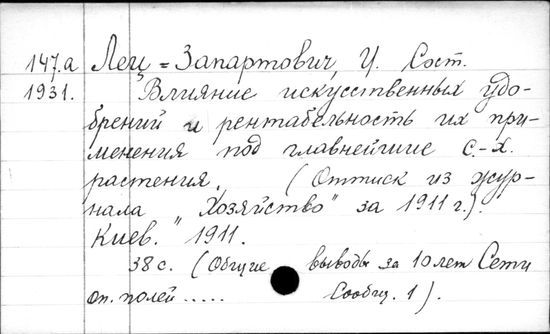 147.а Лец = Запартович, И. Сост.
1931. Влияние искусственных удо-
брений и рентабельность их при-
менения под главнейшие с.-х.
растения. (Оттиск из жур-
нала "Хозяйство" за 1911 г.).
Киев. 1911.
38 с. (Общие выводы за 10 лет Сети
оп. полей ..... Сообщ. 1).